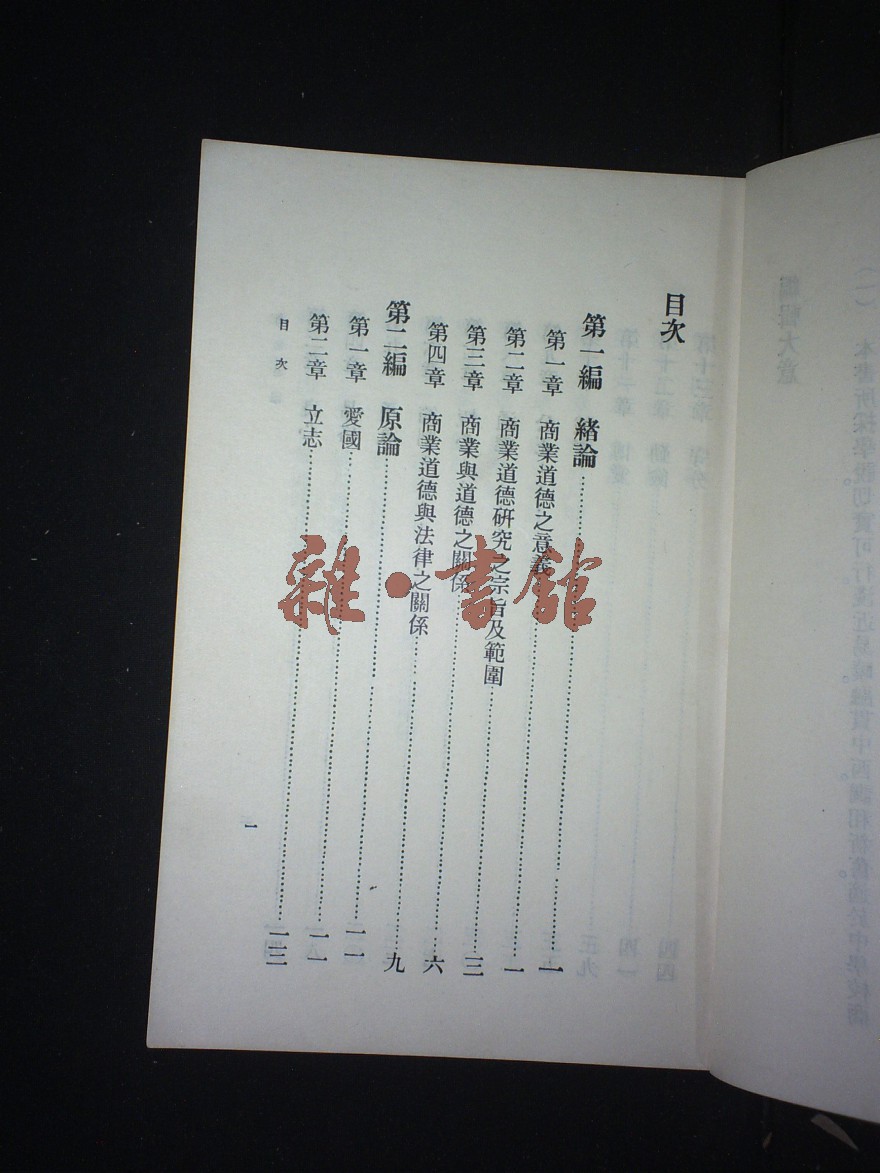 目次
第一編 緒論……一
第一章 商業道德之意義……一
第二章 商業道德研究之宗旨及範圍……三
第三章 商業與道德之關係……六
第四章 商業道德與法律之關係……九
第二編 原論……一一
第一章 愛國……一一
第二章 立志……一三
目次
一
雜·書館